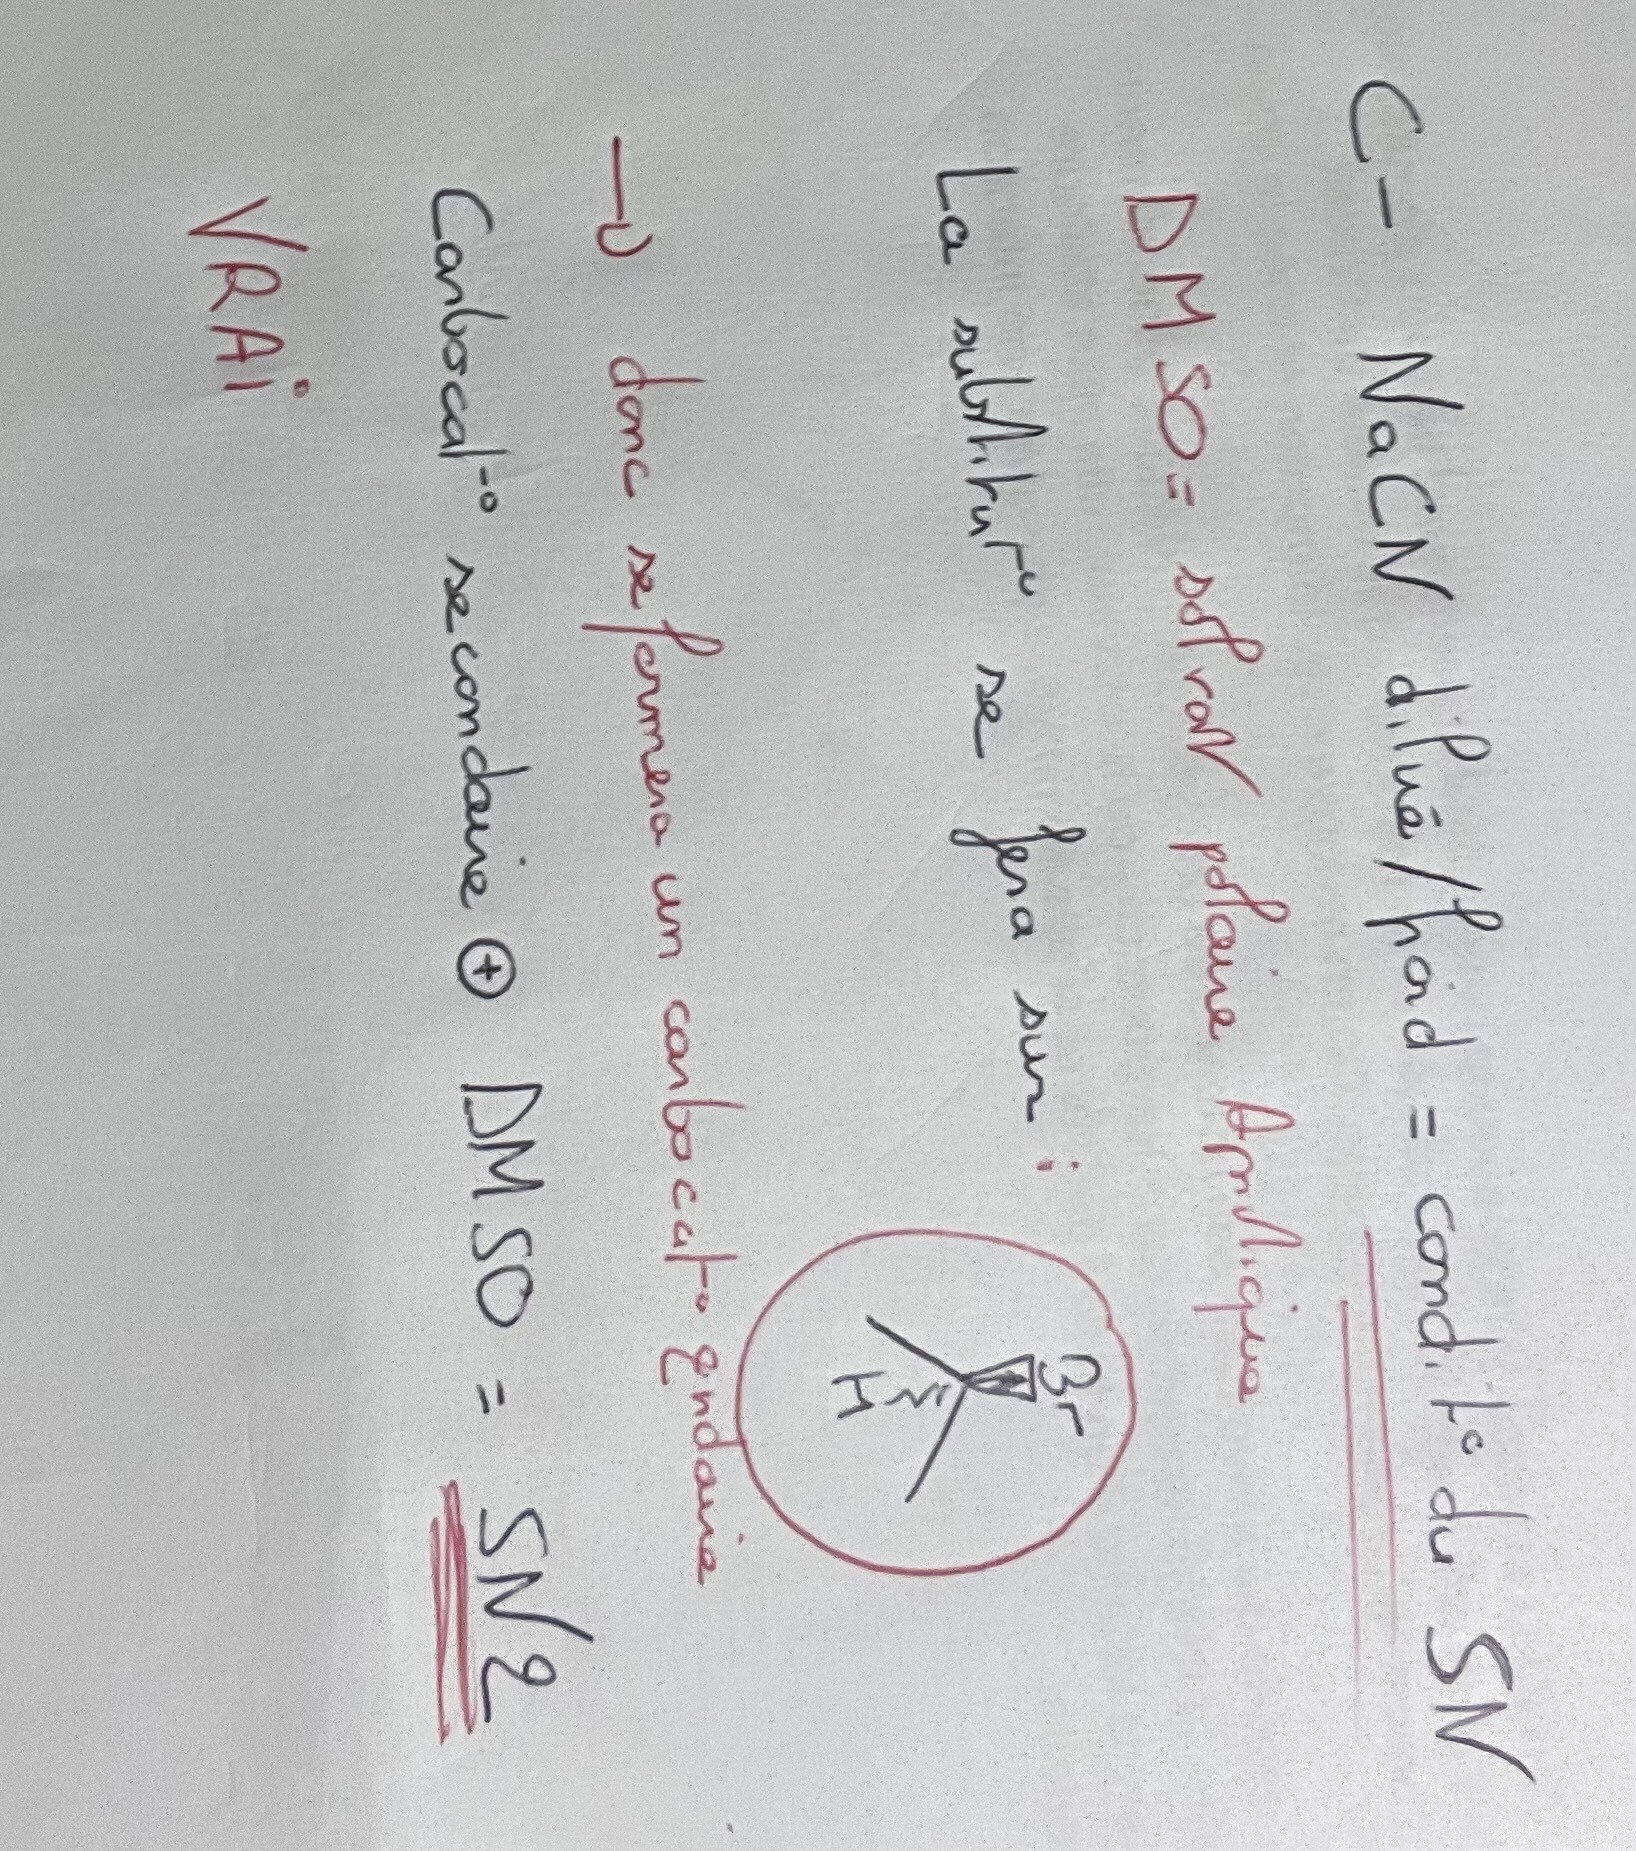 C- NaCN dilué/froid = condit° du SN
DMSO = solvant polaire Aprotique
La substitut° se fera sur :
Br
H
→ donc se formera un carbocat° 2ndaire
Carbocat° secondaire ⊕ DMSO = SN2
VRAi